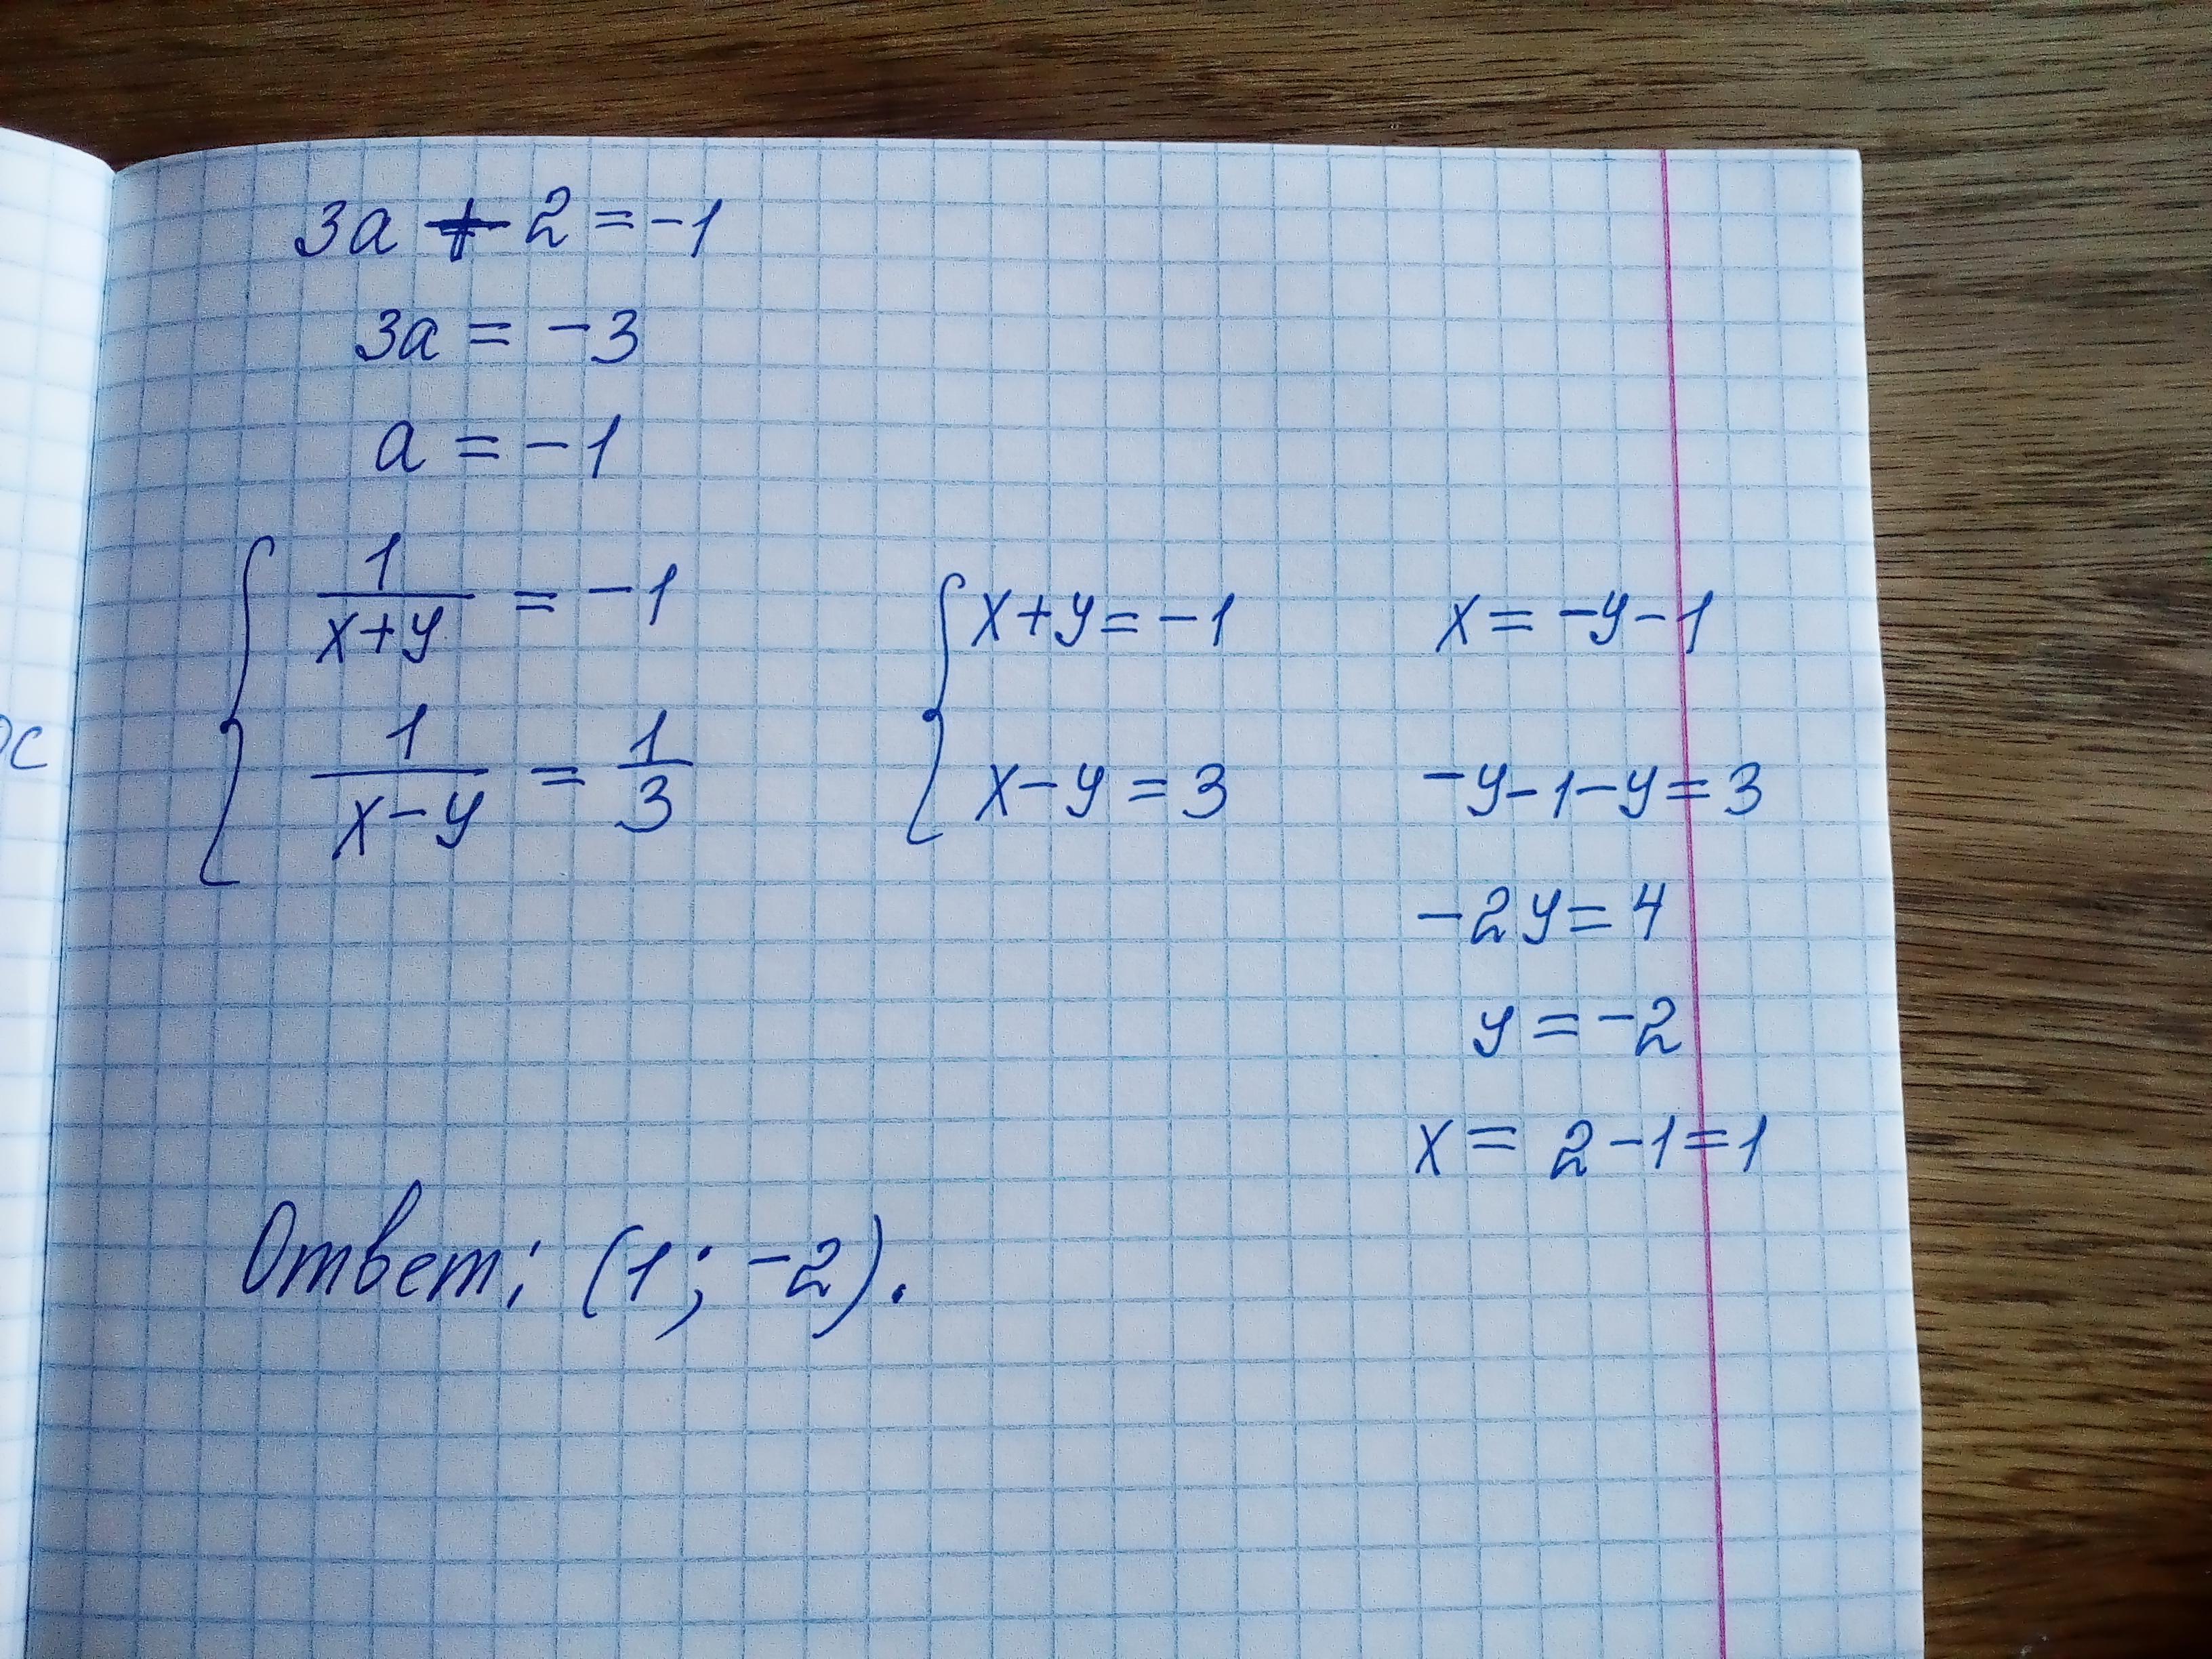 3a + 2 = -1
3a = -3
a = -1
1/(x+y) = -1
1/(x-y) = 1/3
x+y = -1
x-y = 3
x = -y-1
-y-1-y = 3
-2y = 4
y = -2
x = 2-1 = 1
Ответ: (1; -2).